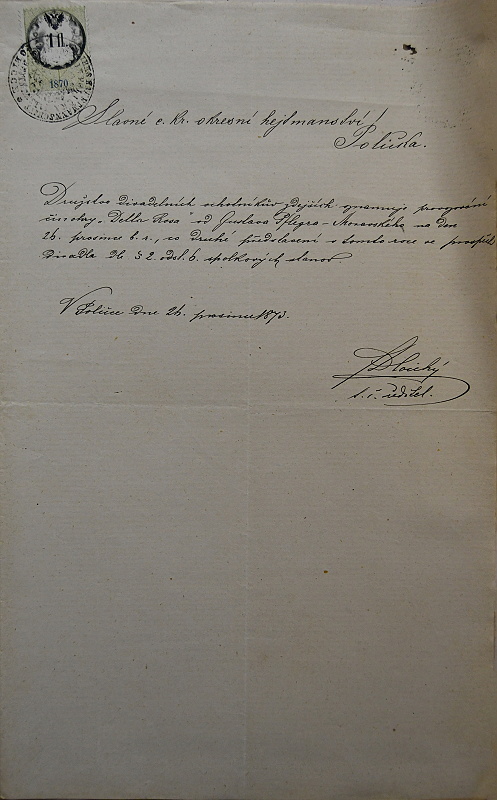 1 fl.
1870
Slavné c. kr. okresní hejtmanství!
Polička.
Družstvo divadelních ochotníků zdejších oznamuje provozování
činohry „Della Rosa" od Gustava Pflegra-Moravského na den
26. prosince b. r., co druhé představení v tomto roce ve prospěch
divadla dle § 2. odst. 6. spolkových stanov
V Poličce dne 26. prosince 1873.
t. č. ředitel.